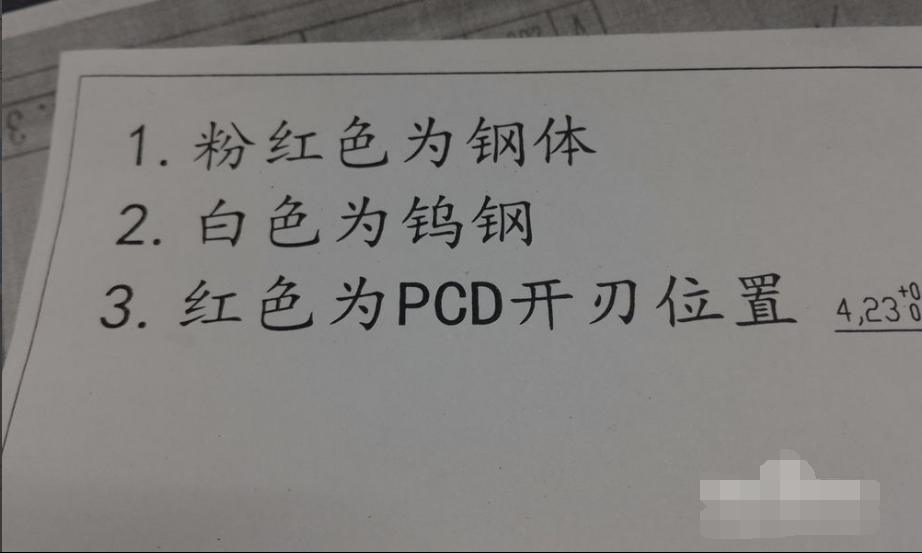 1. 粉红色为钢体
2. 白色为钨钢
3. 红色为PCD开刃位置
4,23